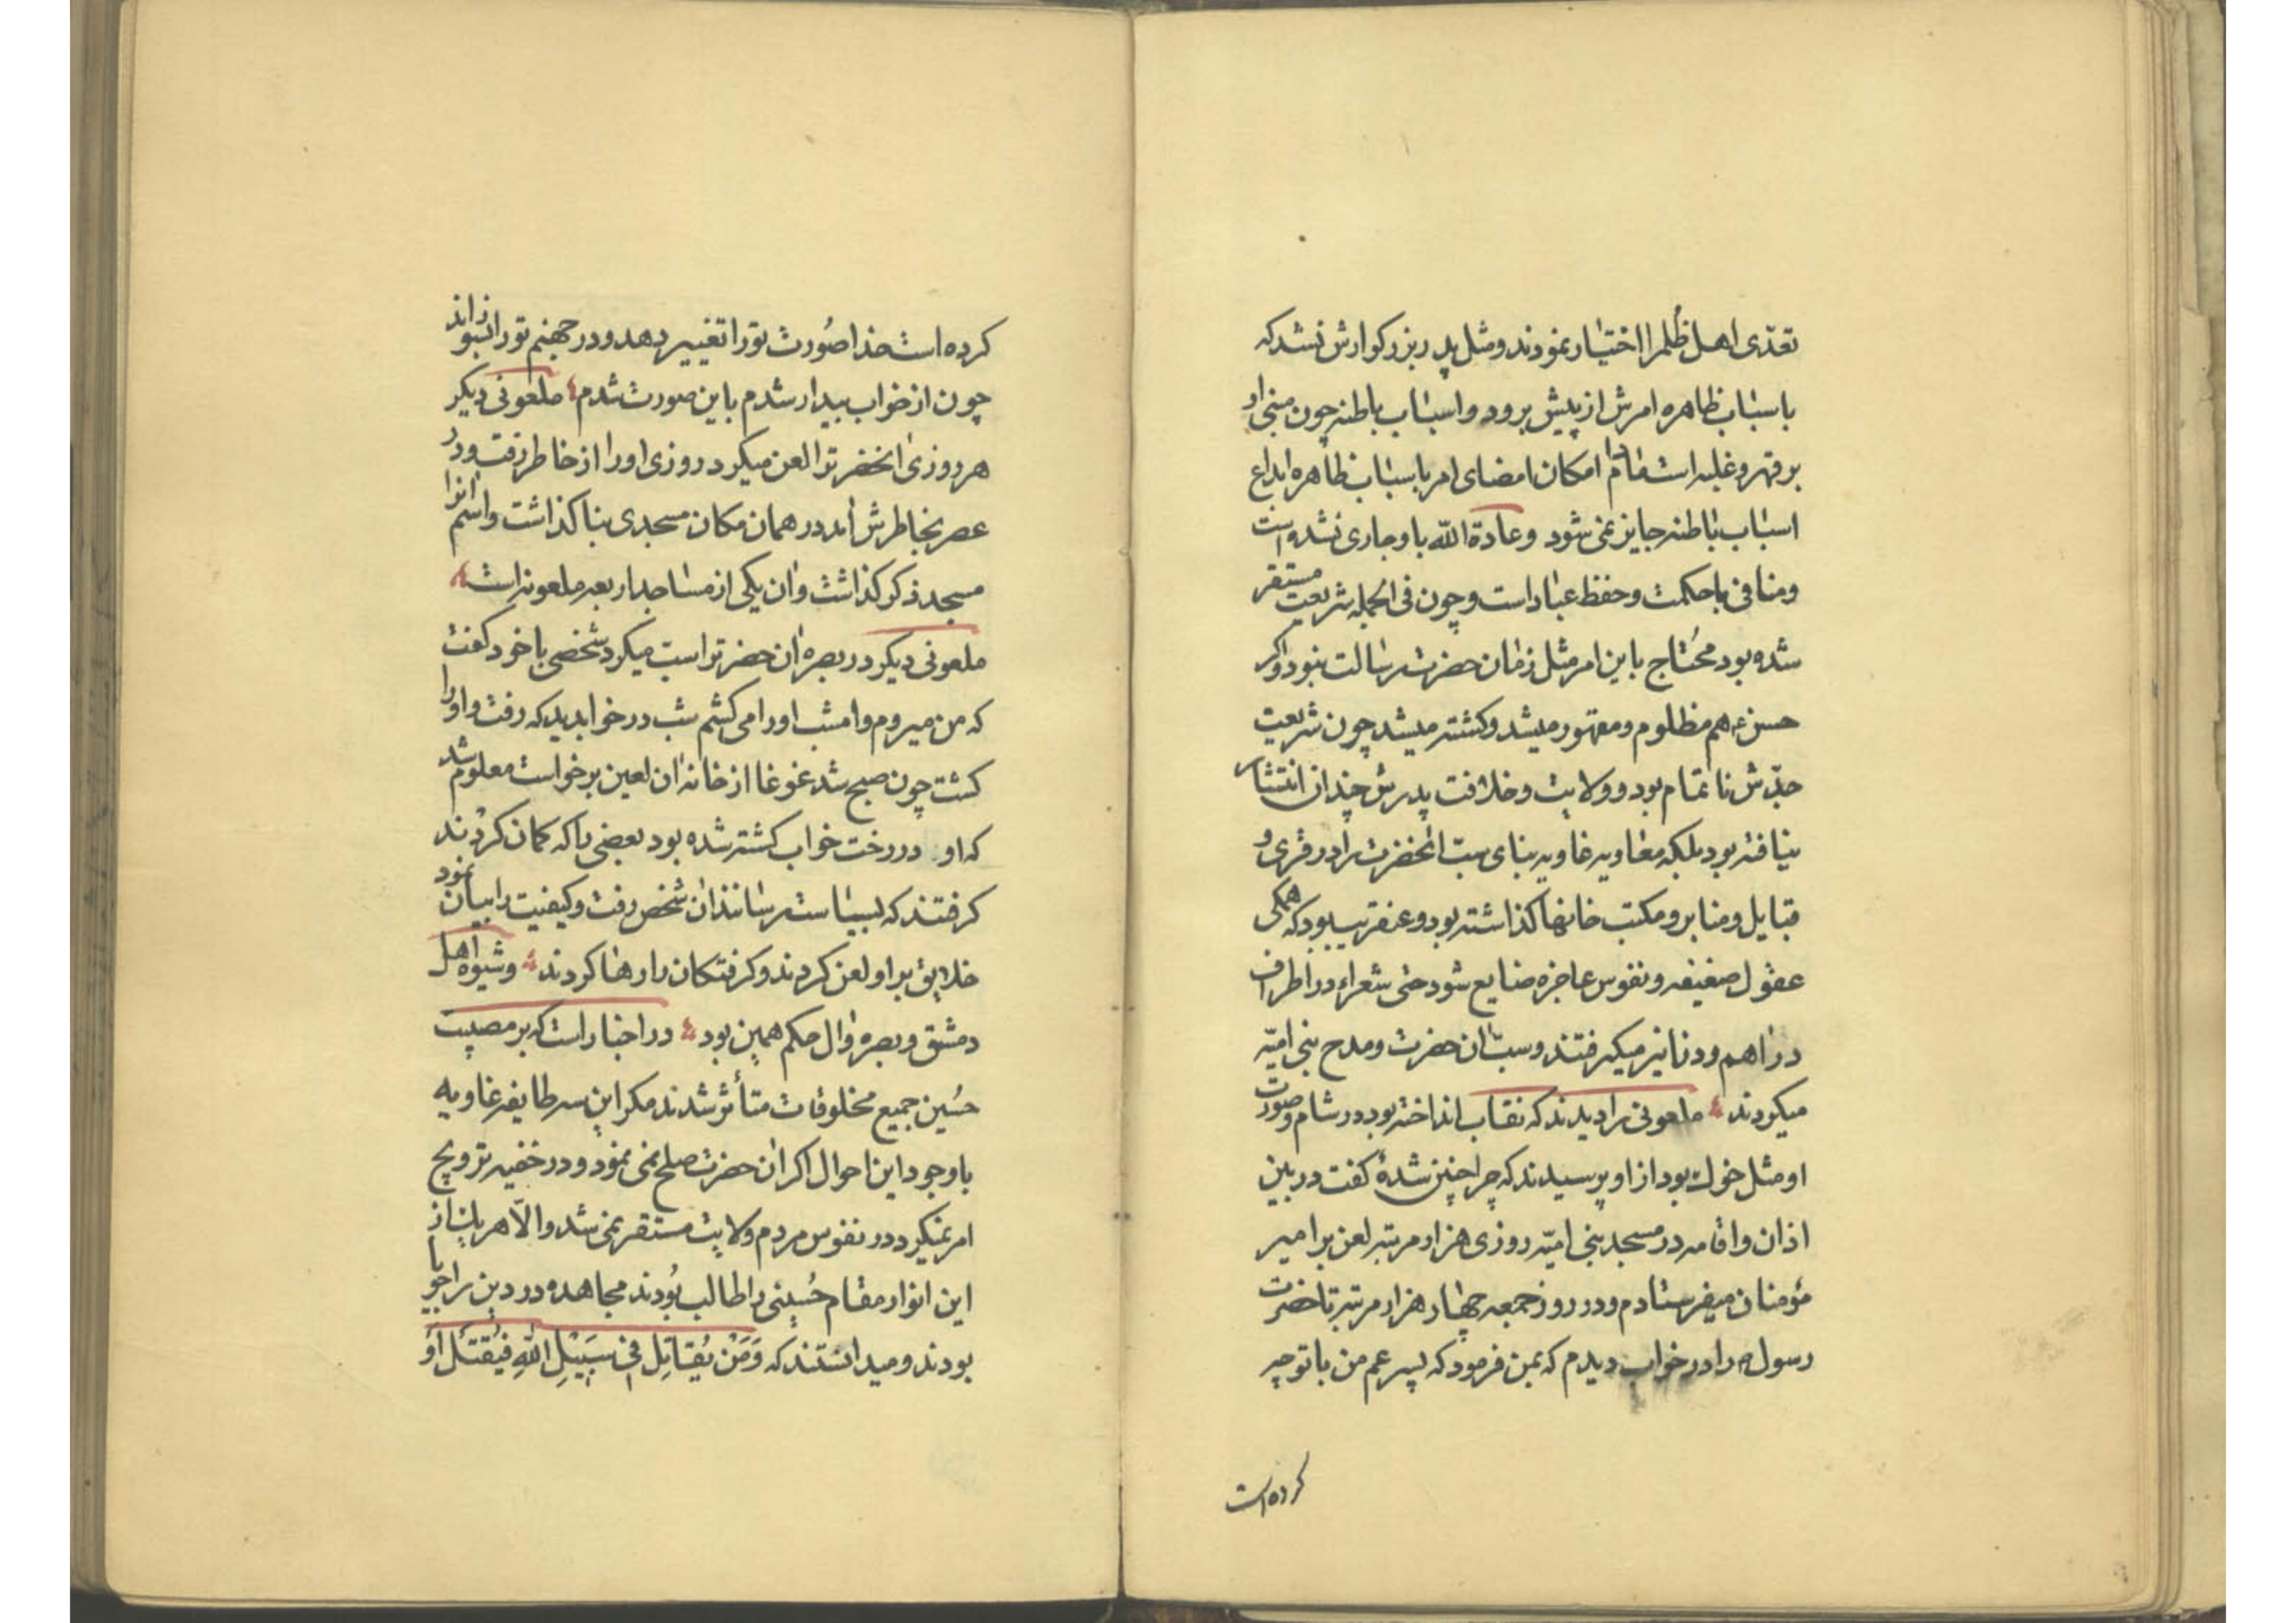 تعدّی اهل ظلم را اختیار نمودند و مثل پدر بزرکوارش نشد که
باسباب ظاهره امرش از پیش برود و اسباب باطنه چون مبنی او
بر قهر و غلبه است مادام امکان امضای امر باسباب ظاهره ابداع
اسباب باطنه جایز نمی شود و عادة الله باو جاری نشده است
و منافی با حکمت و حفظ عباد است و چون فی الجمله شریعت مستقر
شده بود محتاج باین امر مثل زمان حضرت رسالت نبود و اکر
حسن ع هم مظلوم و مقهور میشد و کشته میشد چون شریعت
جدّش ناتمام بود و ولایت و خلافت پدرش چندان انتشار
نیافته بود بلکه معاویه غاویه بنای سب انحضرت را در قری و
قبایل و منابر و مکتب خانها کذاشته بود و عنقریب بود که همکی
عقول ضعیفه و نفوس عاجزه ضایع شود حتی شعراء در اطراف
دراهم و دنانیر میکرفتند و سبّ ان حضرت و مدح بنی امیّه
میکردند ملعونی را دیدند که نقاب انداخته بود در شام و صورت
او مثل خوك بود از او پرسیدند که چرا چنین شدهٔ کفت در بین
اذان و اقامه در مسجد بنی امیّه روزی هزار مرتبه لعن بر امیر
مؤمنان میفرستادم و در روز جمعه چهار هزار مرتبه تا حضرت
رسول ص را در خواب دیدم که بمن فرمود که پسر عم من با تو چه
کرده است
کرده است خدا صُورت تو را تغییر دهد و در جهنم تو را بسوزاند
چون از خواب بیدار شدم باین صورت شدم ملعونی دیکر
هر روزی انحضرت را لعن میکرد روزی او را از خاطر رفت و در
عصر بخاطرش آمد در همان مکان مسجدی بنا کذاشت و اسم انرا
مسجد ذکر کذاشت و ان یکی از مساجد اربعه ملعونه است
ملعونی دیکر در بصره ان حضرت را سب میکرد شخصی با خود کفت
که من میروم و امشب او را می کشم شب در خواب دید که رفت و او را
کشت چون صبح شد غوغا از خانه ان لعین برخواست معلوم شد
که او در رخت خواب کشته شده بود بعضی را که کمان کردند
کرفتند که بسیاست رسانند ان شخص رفت و کیفیت را بیان نمود
خلایق بر او لعن کردند و کرفتکان را رها کردند و شیوه اهل
دمشق و بصره و ال حکم همین بود در اخبار است که بر مصیبت
حُسین جمیع مخلوقات متأثر شدند مکر این سه طایفه غاویه
با وجود این احوال اکر ان حضرت صلح نمی نمود و در خفیه ترویج
امر نمیکرد در نفوس مردم ولایت مستقر نمی شد و الّا هر یك از
این انوار مقام حُسینی را طالب بُودند مجاهده در دین را جویا
بودند و میدانستند که وَمَنْ یُقاتِل فی سَبیْلِ اللهِ فَیُقتَل أَوْ